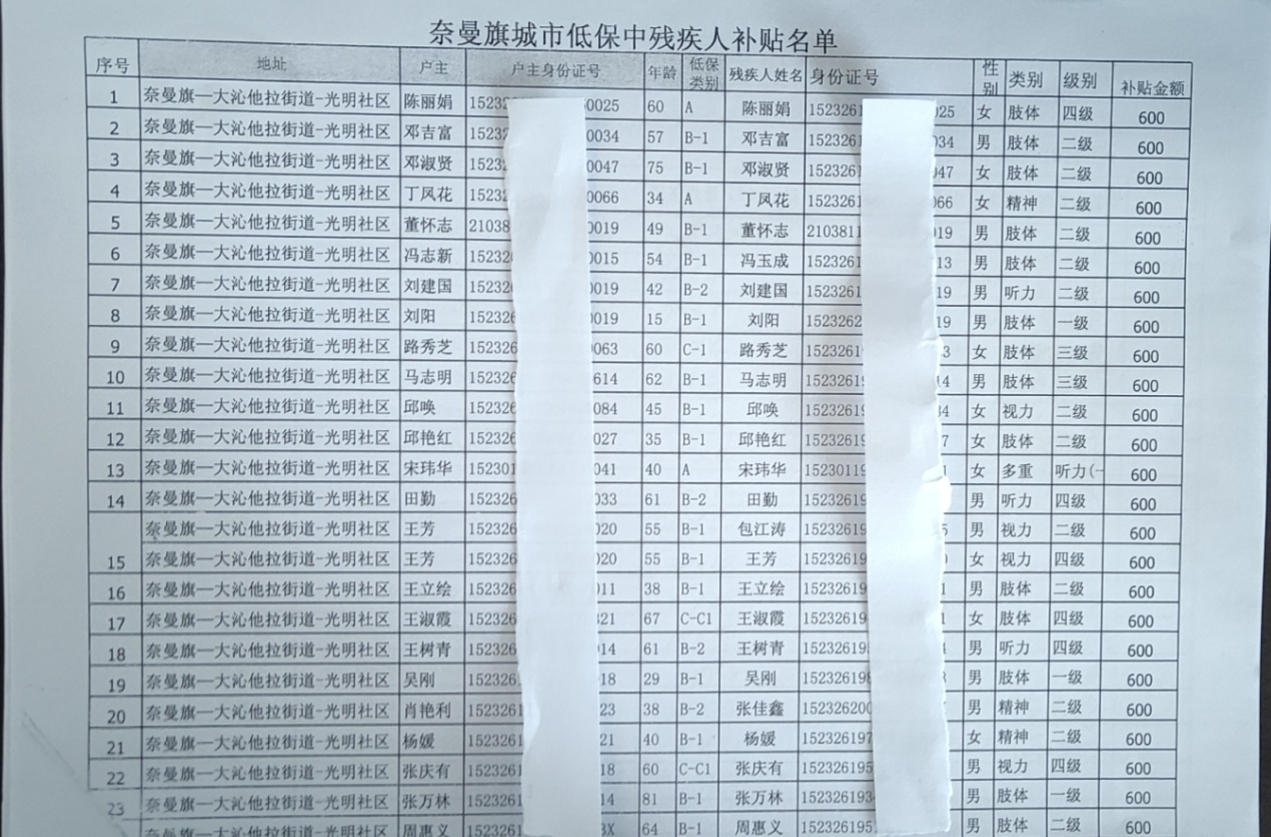 奈曼旗城市低保中残疾人补贴名单
序号 地址 户主 户主身份证号 年龄 低保类别 残疾人姓名 身份证号 性别 类别 级别 补贴金额
1 奈曼旗—大沁他拉街道-光明社区 陈丽娟 15232 0025 60 A 陈丽娟 1523261 025 女 肢体 四级 600
2 奈曼旗—大沁他拉街道-光明社区 邓吉富 15232 0034 57 B-1 邓吉富 1523261 034 男 肢体 二级 600
3 奈曼旗—大沁他拉街道-光明社区 邓淑贤 15232 0047 75 B-1 邓淑贤 1523261 047 女 肢体 二级 600
4 奈曼旗—大沁他拉街道-光明社区 丁凤花 15232 0066 34 A 丁凤花 1523261 066 女 精神 二级 600
5 奈曼旗—大沁他拉街道-光明社区 董怀志 21038 0019 49 B-1 董怀志 2103811 019 男 肢体 二级 600
6 奈曼旗—大沁他拉街道-光明社区 冯志新 152326 0015 54 B-1 冯玉成 1523261 13 男 肢体 二级 600
7 奈曼旗—大沁他拉街道-光明社区 刘建国 152326 0019 42 B-2 刘建国 1523261 19 男 听力 二级 600
8 奈曼旗—大沁他拉街道-光明社区 刘阳 152326 0019 15 B-1 刘阳 1523262 19 男 肢体 一级 600
9 奈曼旗—大沁他拉街道-光明社区 路秀芝 152326 063 60 C-1 路秀芝 1523261 3 女 肢体 三级 600
10 奈曼旗—大沁他拉街道-光明社区 马志明 152326 614 62 B-1 马志明 15232619 14 男 肢体 三级 600
11 奈曼旗—大沁他拉街道-光明社区 邱唤 152326 084 45 B-1 邱唤 15232619 34 女 视力 二级 600
12 奈曼旗—大沁他拉街道-光明社区 邱艳红 152326 027 35 B-1 邱艳红 15232619 7 女 肢体 二级 600
13 奈曼旗—大沁他拉街道-光明社区 宋玮华 152301 041 40 A 宋玮华 15230119 女 多重 听力(一 600
14 奈曼旗—大沁他拉街道-光明社区 田勤 152326 033 61 B-2 田勤 15232619 男 听力 四级 600
奈曼旗—大沁他拉街道-光明社区 王芳 152326 020 55 B-1 包江涛 15232619 男 视力 二级 600
15 奈曼旗—大沁他拉街道-光明社区 王芳 152326 020 55 B-1 王芳 15232619 女 视力 四级 600
16 奈曼旗—大沁他拉街道-光明社区 王立绘 152326 011 38 B-1 王立绘 15232619 1 男 肢体 二级 600
17 奈曼旗—大沁他拉街道-光明社区 王淑霞 152326 321 67 C-C1 王淑霞 15232619 1 女 肢体 四级 600
18 奈曼旗—大沁他拉街道-光明社区 王树青 152326 14 61 B-2 王树青 15232619 男 听力 四级 600
19 奈曼旗—大沁他拉街道-光明社区 吴刚 152326 18 29 B-1 吴刚 15232619 男 肢体 一级 600
20 奈曼旗—大沁他拉街道-光明社区 肖艳利 1523261 23 38 B-2 张佳鑫 152326200 男 精神 二级 600
21 奈曼旗—大沁他拉街道-光明社区 杨媛 1523261 21 40 B-1 杨媛 152326197 女 精神 二级 600
22 奈曼旗—大沁他拉街道-光明社区 张庆有 1523261 18 60 C-C1 张庆有 152326195 男 视力 四级 600
23 奈曼旗—大沁他拉街道-光明社区 张万林 1523261 14 81 B-1 张万林 152326193 男 肢体 一级 600
奈曼旗—大沁他拉街道-光明社区 周惠义 1523261 3X 64 B-1 周惠义 152326195 男 肢体 二级 600